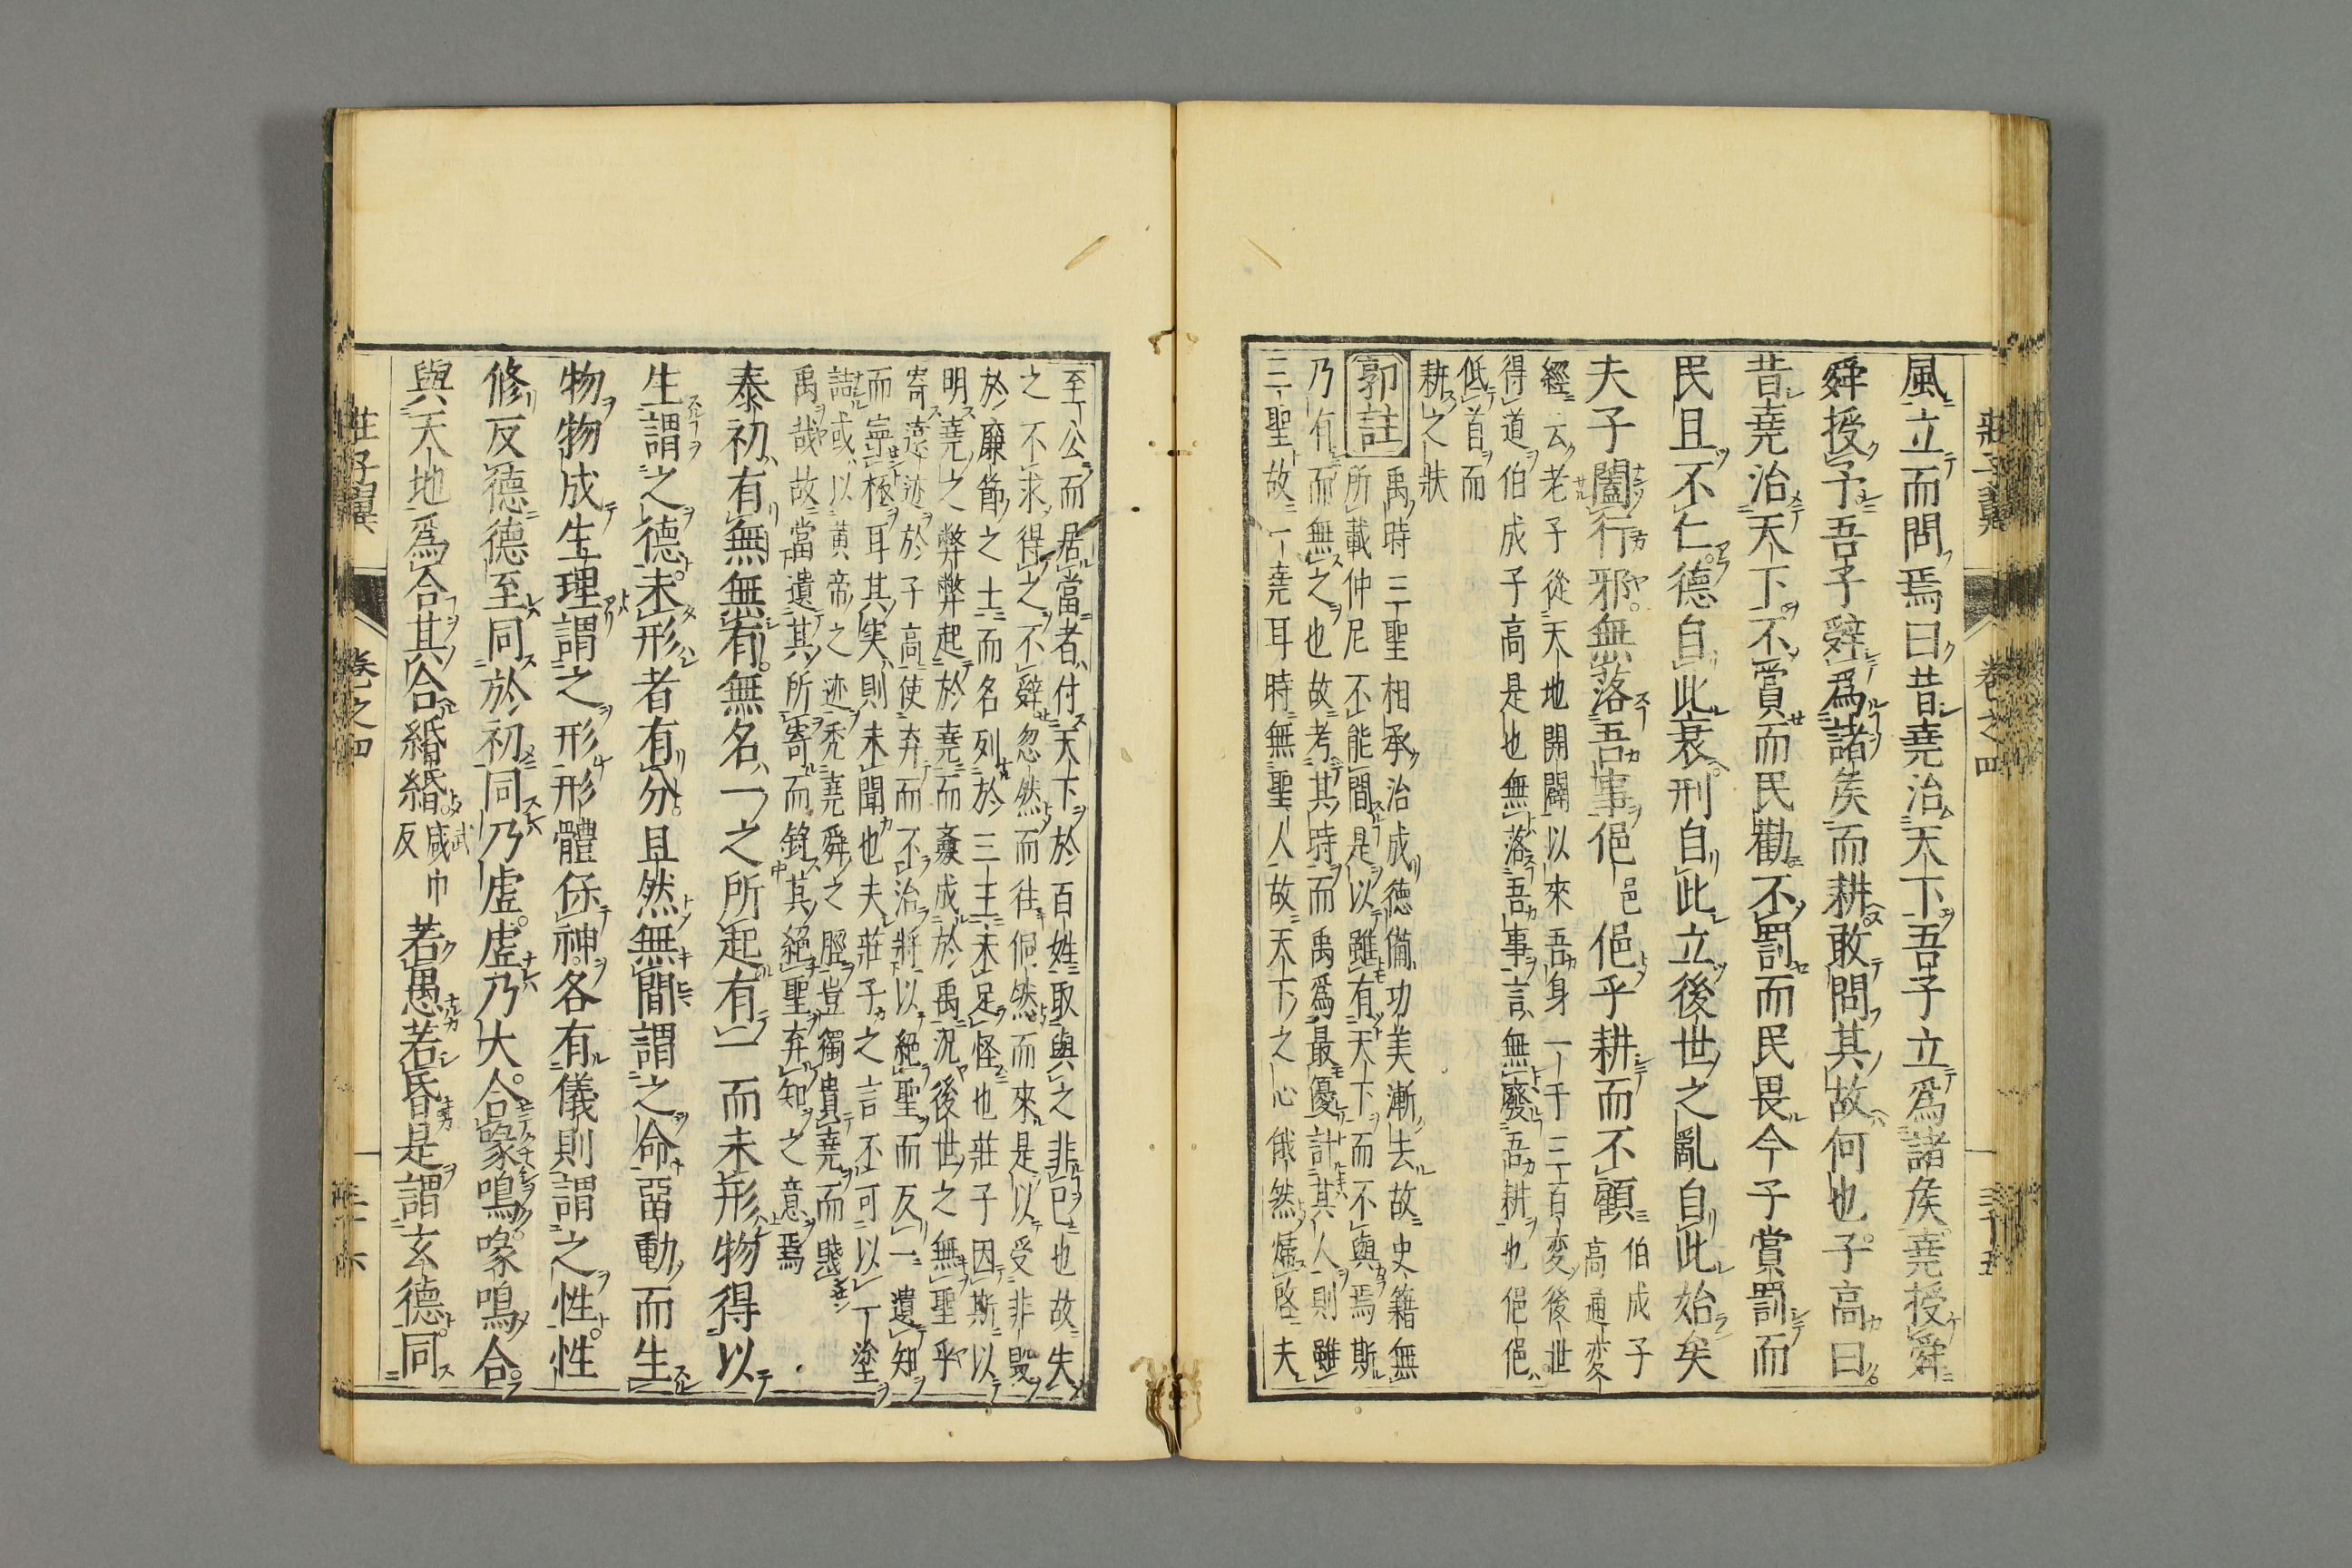 莊子翼 卷之四 三十五
風立而問焉曰昔堯治天下吾子立爲諸矦堯授舜
舜授予吾子辭爲諸矦而耕敢問其故何也子高曰
昔堯治天下不賞而民勸不罰而民畏今子賞罰而
民且不仁德自此衰刑自此立後世之亂自此始矣
夫子闔行邪無落吾事俋邑俋乎耕而不顧伯成子高通変
經云老子從天地開闢以來吾身一十三百変後世
得道伯成子高是也無落吾事言無廢吾耕也俋俋
低首而
耕之狀
郭註 禹時三聖相承治成德備功美漸去故史籍無
所載仲尼不能間是以雖有天下而不與焉斯
乃有而無之也故考其時而禹爲最優計其人則雖
三聖故一堯耳時無聖人故天下之心俄然㷌啓夫
至公而居當者付天下於百姓取與之非巳也故失
之不求得之不辭忽然而往侗然而來是以受非毀
於廉節之士而名列於三王未足怪也莊子因斯以
明堯之弊弊起於堯而釁成於禹況後世之無聖乎
寄遠迹於子高使弃而不治將以絕聖而反一遺知
而寧極耳其実則未聞也夫莊子之言不可以一塗
詰或以黄帝之迹秃堯舜之脛豈獨貴堯而賤
禹哉故當遺其所寄而錄其絕聖弃知之意焉
泰初有無無有無名一之所起有一而未形物得以
生謂之德未形者有分且然無間謂之命畱動而生
物物成生理謂之形形體保神各有儀則謂之性性
修反德德至同於初同乃虛虛乃大合喙鳴喙鳴合
與天地爲合其合緡緡武巾反若愚若昏是謂玄德同
莊子翼 卷之四 三十六